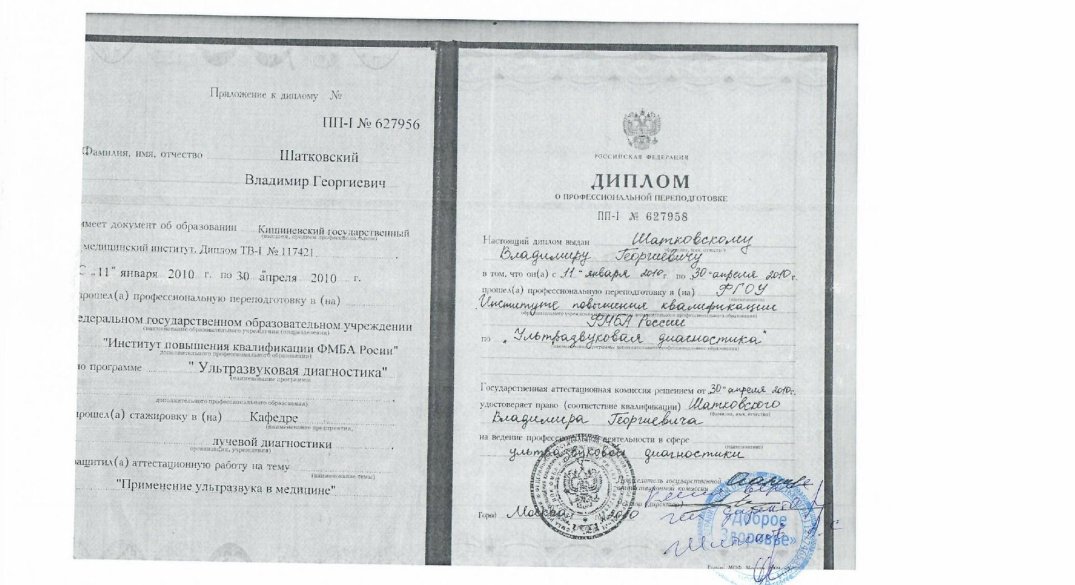 Приложение к диплому №
ПП-I № 627956
Фамилия, имя, отчество Шатковский
Владимир Георгиевич
имеет документ об образовании Кишиневский государственный
медицинский институт. Диплом ТВ-I № 117421
С „11" января 2010 г. по 30 апреля 2010 г.
прошел(а) профессиональную переподготовку в (на)
едеральном государственном образовательном учреждении
(наименование образовательного учреждения (подразделения)
"Институт повышения квалификации ФМБА Росии"
дополнительного профессионального образования)
по программе "Ультразвуковая диагностика"
(наименование программы
дополнительного профессионального образования)
прошел(а) стажировку в (на) Кафедре
(наименование предприятия,
лучевой диагностики
организации, учреждения)
защитил(а) аттестационную работу на тему
(наименование темы)
"Применение ультразвука в медицине"
РОССИЙСКАЯ ФЕДЕРАЦИЯ
ДИПЛОМ
О ПРОФЕССИОНАЛЬНОЙ ПЕРЕПОДГОТОВКЕ
ПП-I № 627958
Настоящий диплом выдан Шатковскому
Владимиру Георгиевичу
в том, что он(а) с „11" января 2010 г. по „30" апреля 2010 г.
прошел(а) профессиональную переподготовку в (на) ФГОУ
Институте повышения квалификации
ФМБА России
по „Ультразвуковая диагностика"
Государственная аттестационная комиссия решением от „30" апреля 2010г.
удостоверяет право (соответствие квалификации) Шатковского
(фамилия, имя, отчество)
Владимира Георгиевича
на ведение профессиональной деятельности в сфере
ультразвуковой диагностики
Председатель государственной
аттестационной комиссии
Город Москва 2010
«Доброе
Здоровье»